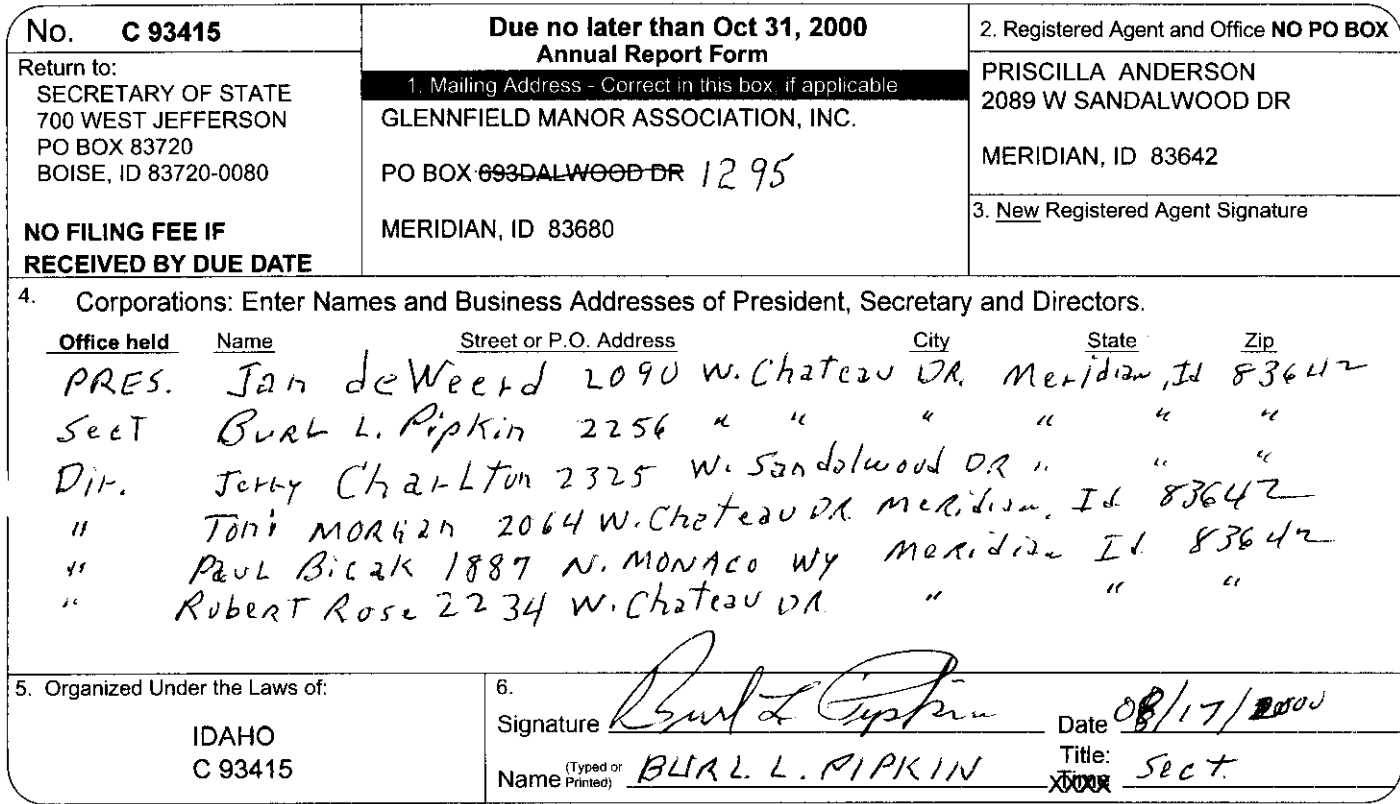 No. C 93415
Return to:
SECRETARY OF STATE
700 WEST JEFFERSON
PO BOX 83720
BOISE, ID 83720-0080
NO FILING FEE IF
RECEIVED BY DUE DATE
Due no later than Oct 31, 2000
Annual Report Form
1. Mailing Address - Correct in this box, if applicable
GLENNFIELD MANOR ASSOCIATION, INC.
PO BOX 693DALWOOD DR 1295
MERIDIAN, ID 83680
2. Registered Agent and Office NO PO BOX
PRISCILLA ANDERSON
2089 W SANDALWOOD DR
MERIDIAN, ID 83642
3. New Registered Agent Signature
4. Corporations: Enter Names and Business Addresses of President, Secretary and Directors.
Office held Name Street or P.O. Address City State Zip
PRES. Jan deWeerd 2090 W. Chateau DR. Meridian, Id 83642
SecT BURL L. Pipkin 2256 " " " " " "
Dir. Jerry CharLTon 2325 W. Sandalwood DR " " "
" Toni MORGan 2064 W. Chateau DR Meridian, Id 83642
" PauL Bicak 1887 N. MONACO WY Meridian Id 83642
" RobeRT Rose 2234 W. Chateau DR " " "
5. Organized Under the Laws of:
IDAHO
C 93415
6.
Signature Burl L Pipkin Date 08/17/2000
Name (Typed or Printed) BURL L. PIPKIN Title: Sect.